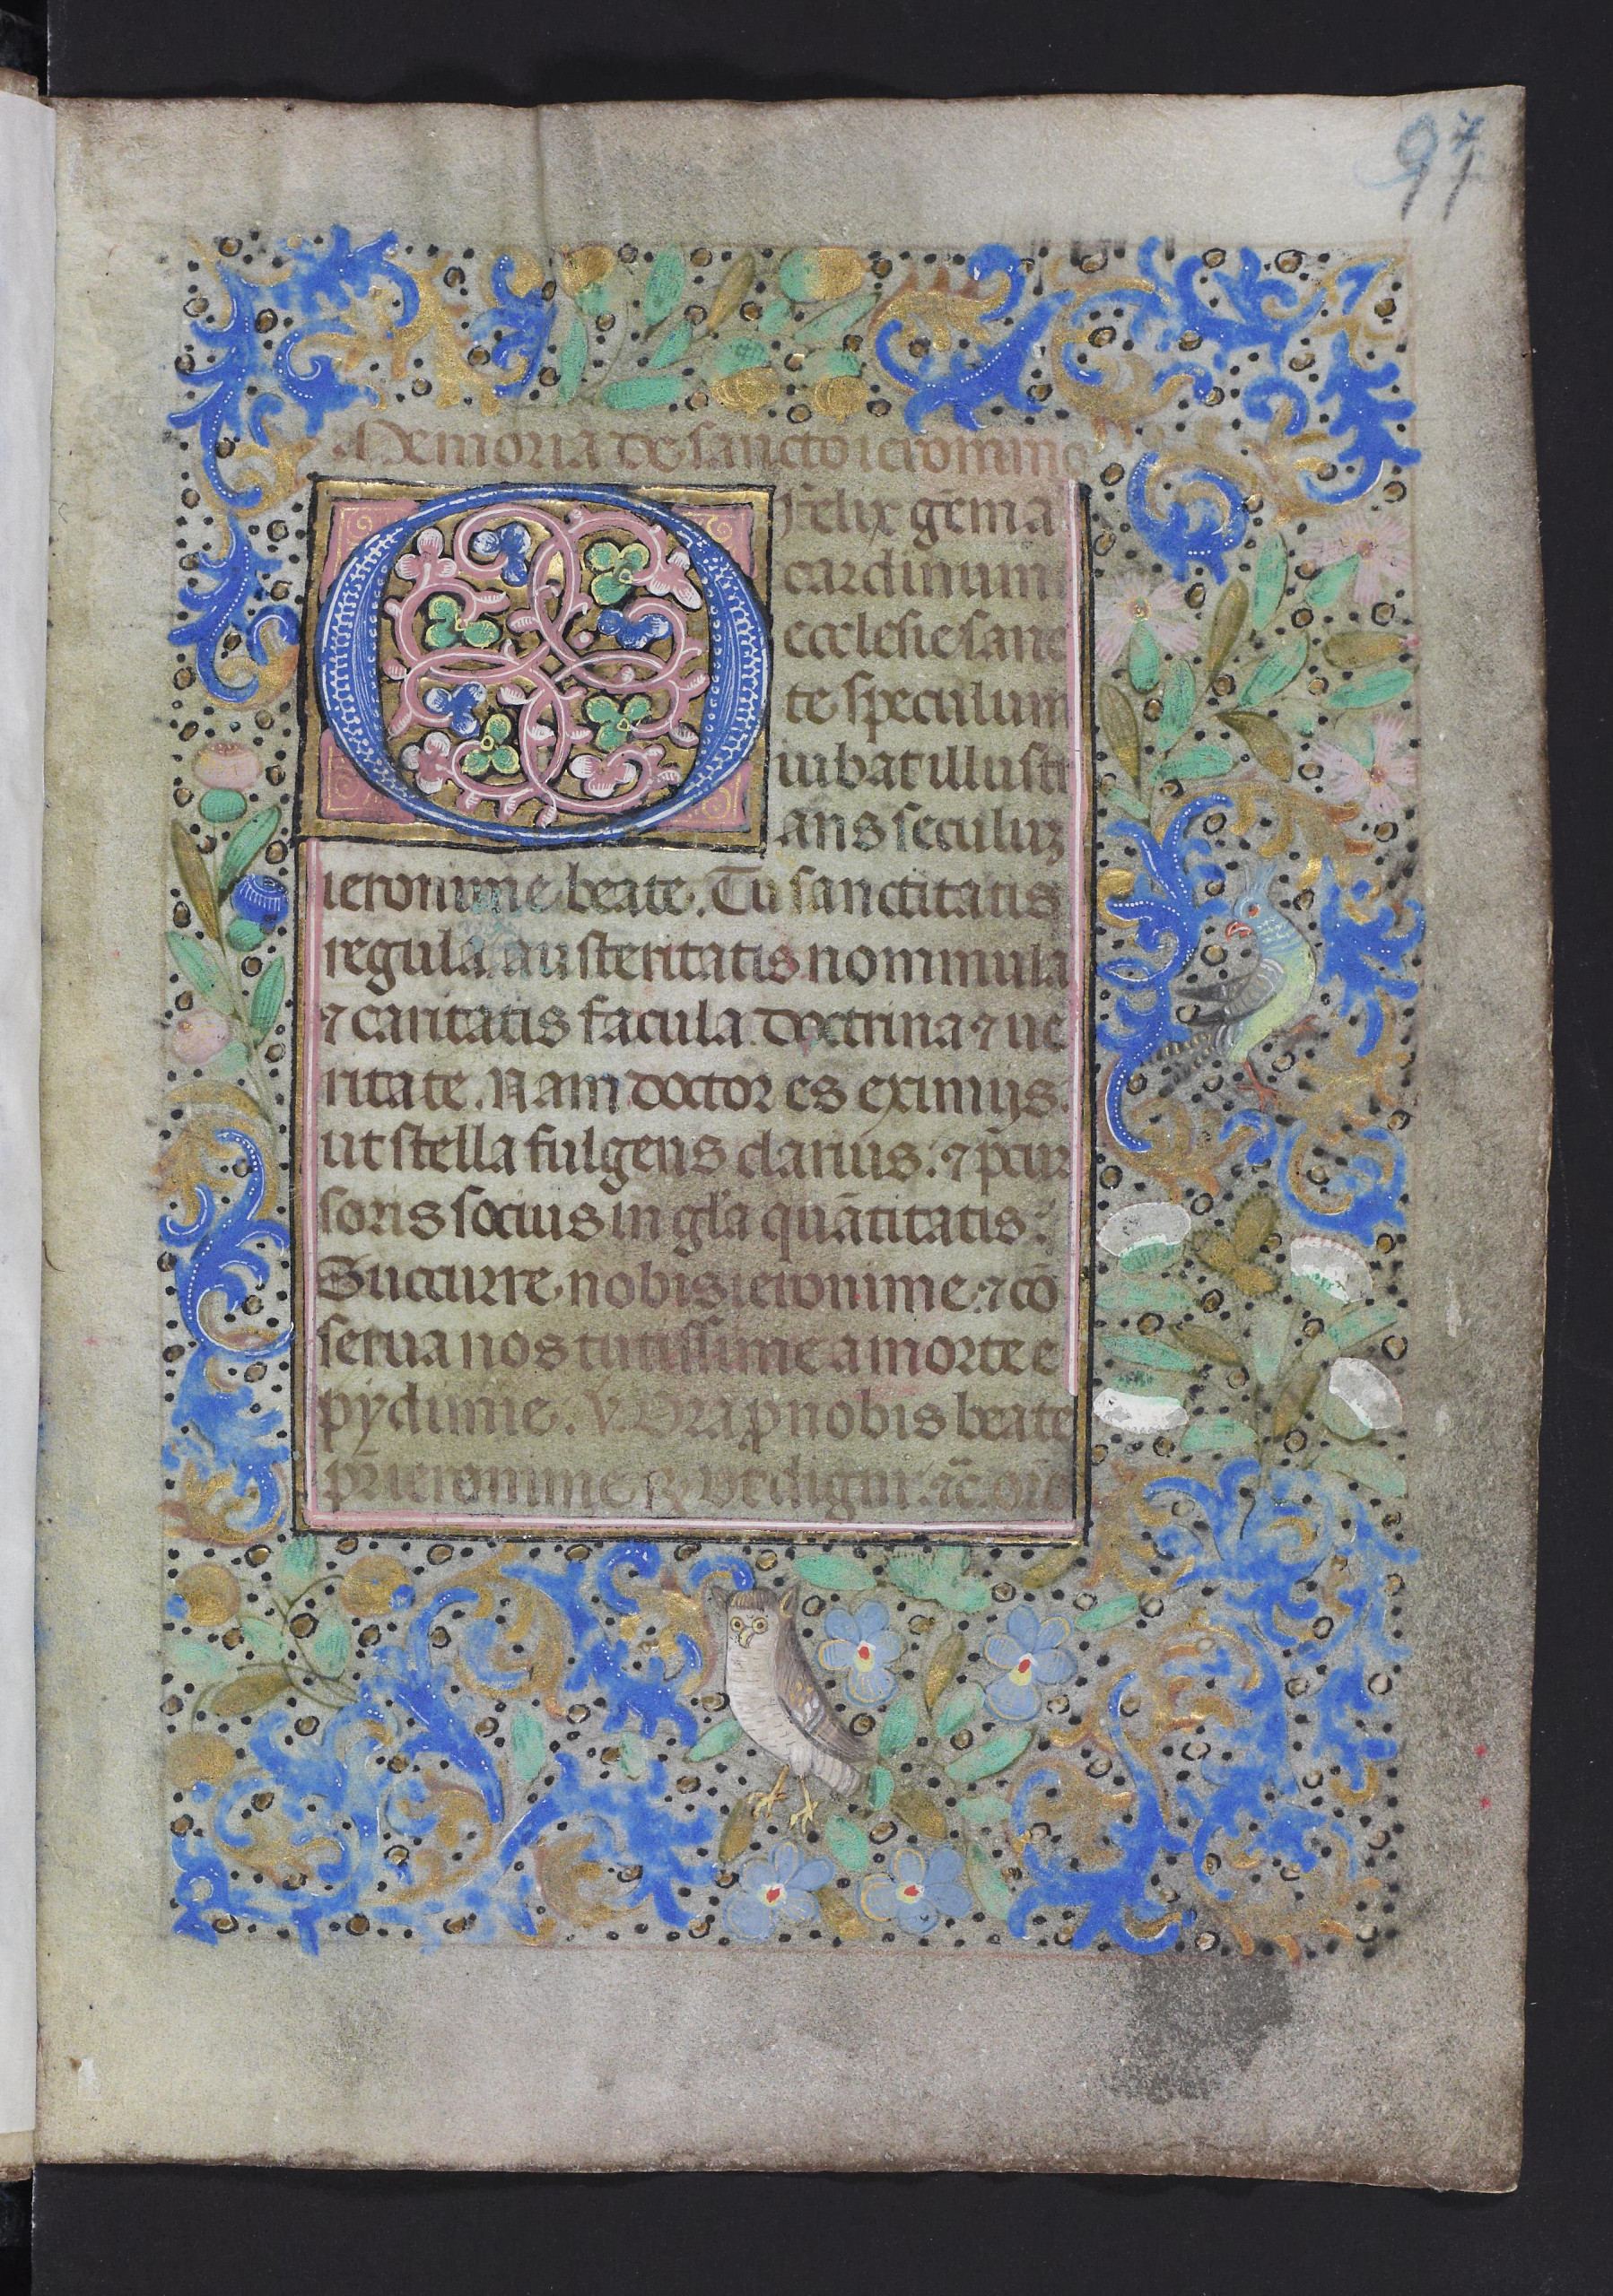 97
Memoria de sancto ieronimo
O felix gēma
cardinum
ecclesie sanc
te speculum
iubat illustr
ans seculuz
ieronime beate. Tu sanctitatis
regula. austeritatis nommula
⁊ caritatis facula. doctrina ⁊ ue
ritate. Nam doctor es eximijs.
ut stella fulgens clarius: ⁊ p̄cur
soris socius in gl'a quātitatis:
Succurre nobis ieronime ⁊ cō
serua nos tutissime a morte e
pydimie. V. Ora ꝓ nobis beate
pr̄ ieronime ℟ Vt digni. ⁊c̄. or̄o